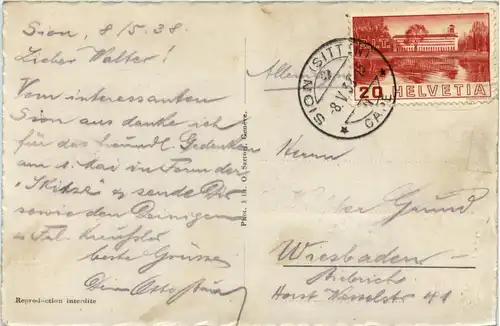 Sion, 8/5.38.
Lieber Walter!
Vom interessanten
Sion aus danke ich
für das freundl. Gedenken
am 1. Mai in Form der
"Skitze" & sende Dir
sowie den Deinigen
beste Grüsse
Dein Otto
Reproduction interdite
Phot. O. Sartori, Genève.
SION (SITTEN)
HELVETIA
20
Herrn
Walter Grund
Wiesbaden-
Biebrich
Horst Wesselstr 41